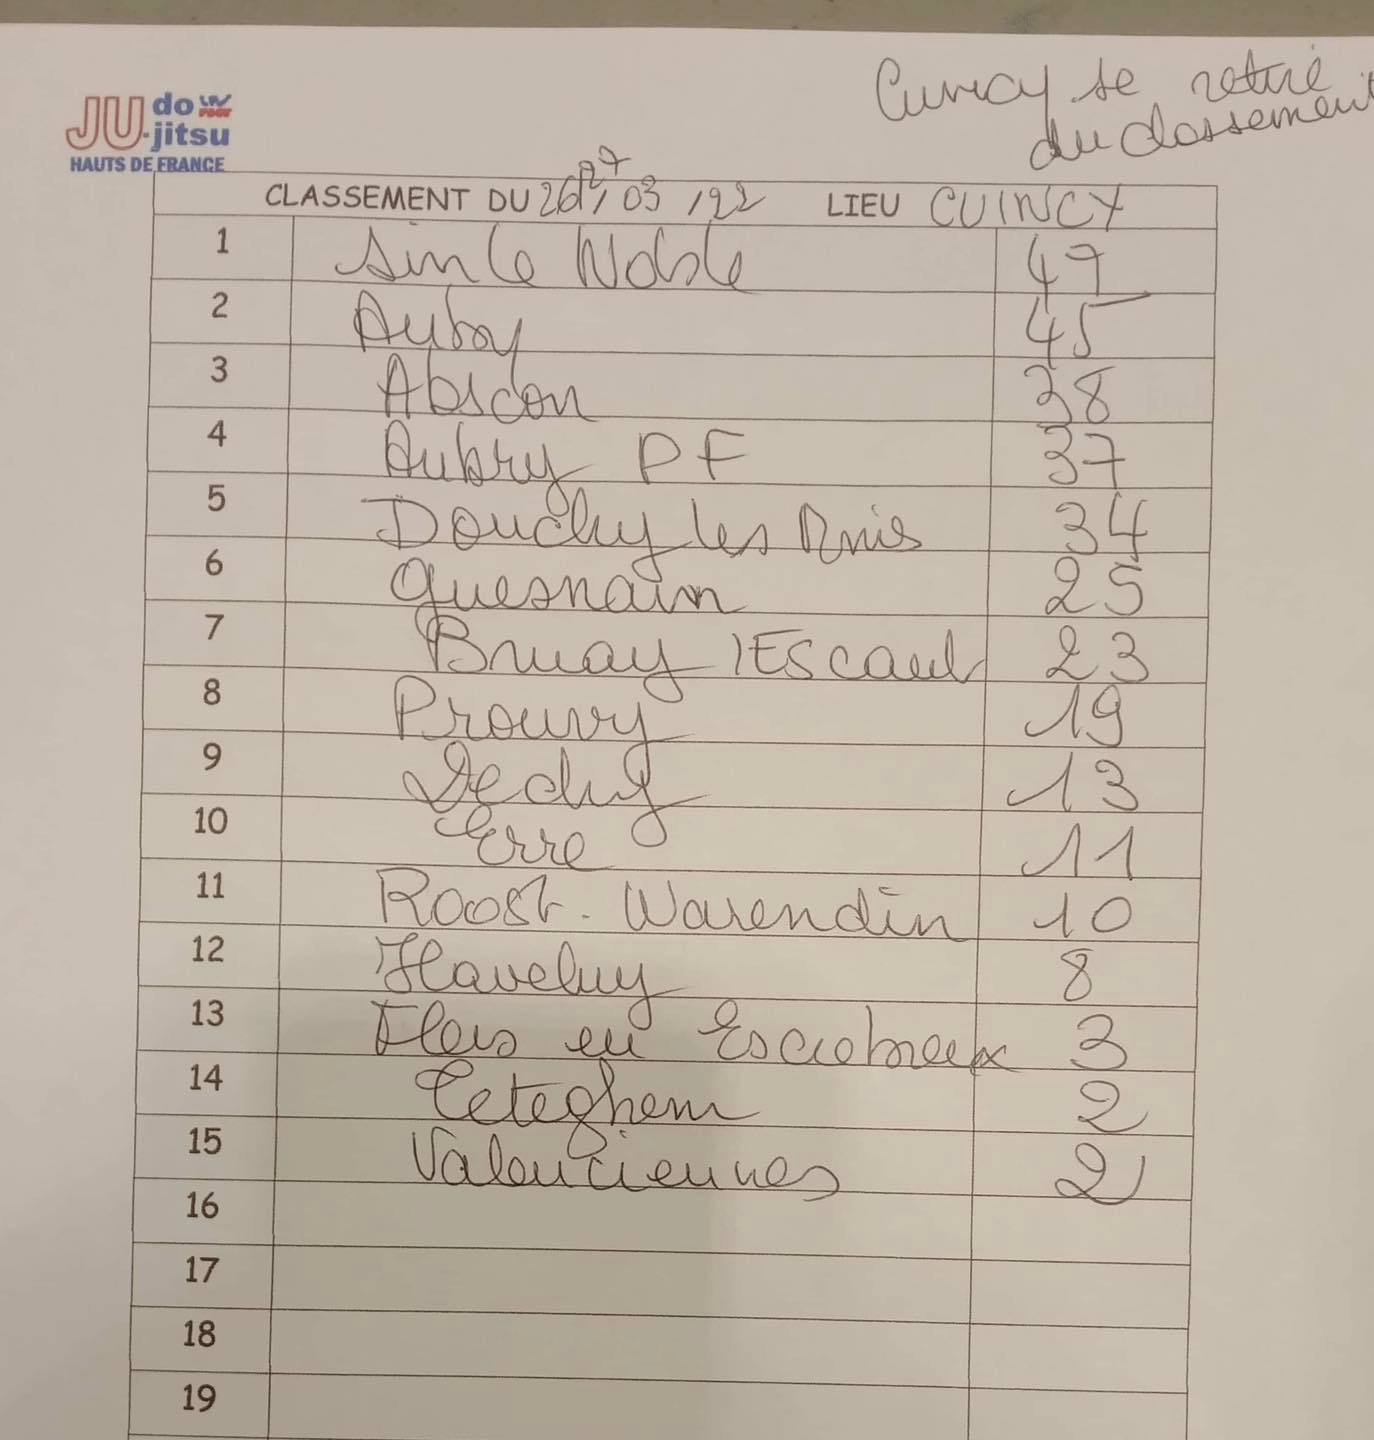 Cuincy se retire
du classement
JUdo
-jitsu
HAUTS DE FRANCE
CLASSEMENT DU 26/27/03/22 LIEU CUINCY
1 Sin le Noble 47
2 Auby 45
3 Abscon 38
4 Aubry PF 37
5 Douchy les Mines 34
6 Quesnain 25
7 Bruay /Escaut 23
8 Prouvy 19
9 Dechy 13
10 Erre 11
11 Roost-Warendin 10
12 Haveluy 8
13 Flers en Escrebieux 3
14 Teteghem 2
15 Valenciennes 2
16
17
18
19